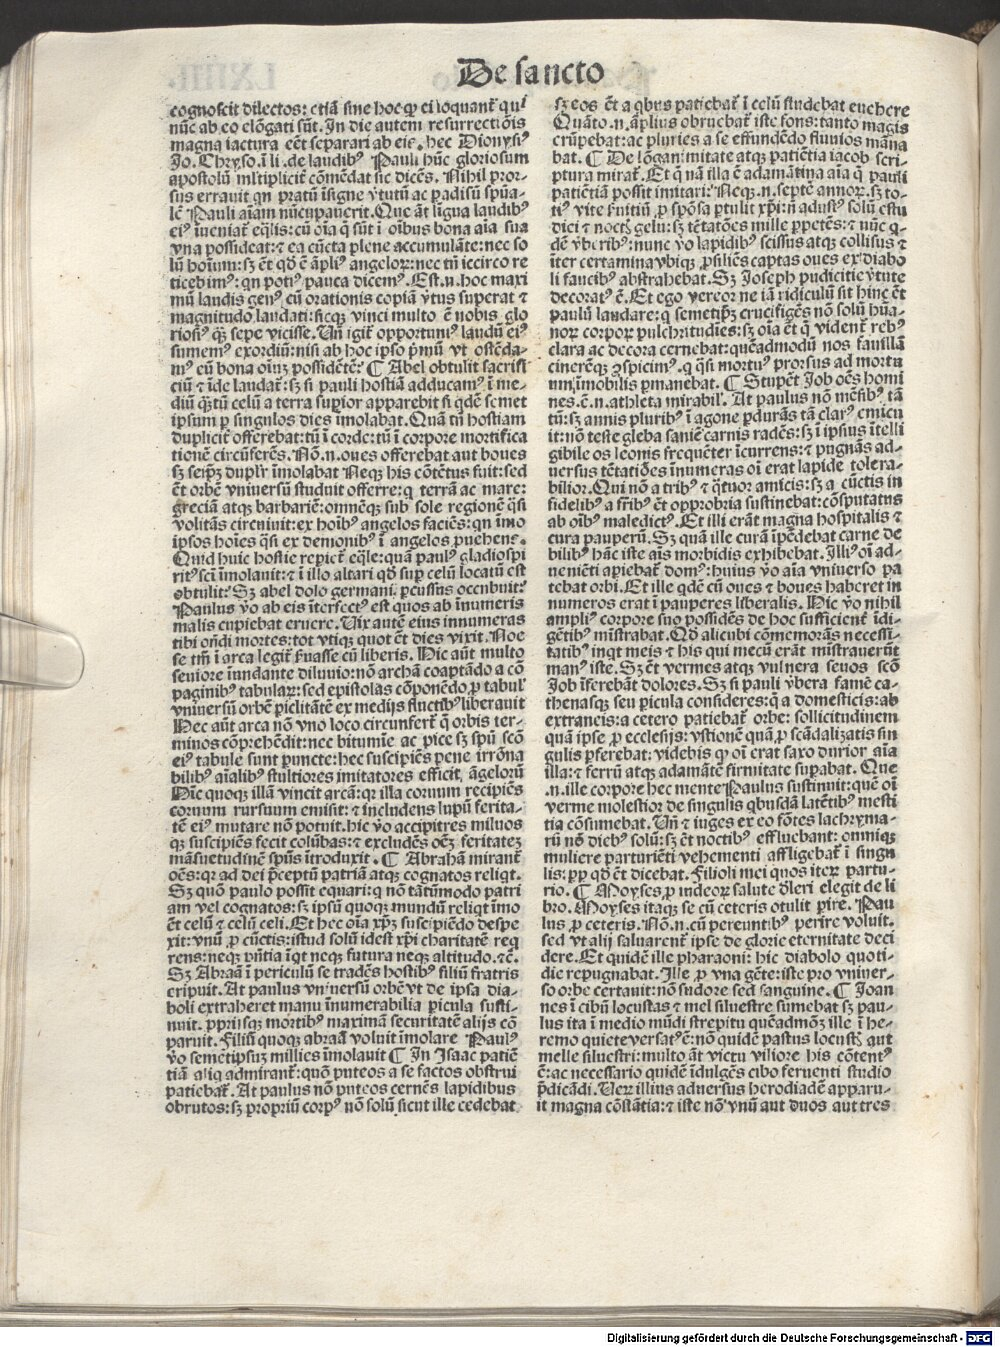 De sancto
cognoscit dilectos: etiā sine hoc ꝙ ei loquantꝛ̄ qui
nūc ab eo elōgati sūt. In die autem resurrectiōis
magna iactura eēt separari ab eis. hec Dionysiꝰ
Jo. Chryso. ī li. de laudibꝰ Pauli hūc gloriosum
apostolū mltiplicit̄ cōmēdat sic dicēs. Nihil pror-
sus errauit qn̄ pratū īsigne v̄tutū ac padisū spūa-
lē Pauli aīam nūcupauerit. Que āt ligua laudibꝰ
eiꝰ īueniat̄ eq̄lis: cū oīa q̄ sūt ī oībus bona aīa sua
vna possideat: ⁊ ea cūcta plene accumulāte: nec so
lū hoīum: sꝫ ēt qd̄ ē āpliꝰ angeloꝝ: nec tn̄ iccirco re
ticebimꝰ: qn potiꝰ pauca dicemꝰ. Est .n. hoc maxi
mū laudis genꝰ cū orationis copiā v̄tus superat ⁊
magnitudo laudati: sicqꝫ vinci multo ē nobis glo
riosiꝰ qꝫ̄ sepe vicisse. Vn̄ igit̄ opportuniꝰ laudū eiꝰ
sumemꝰ exordiū: nisi ab hoc ipso p̄mū vt ostēda-
mꝰ eū bona oīuꝫ possidētē? ¶ Abel obtulit sacrifi
ciū ⁊ īde laudat̄: sꝫ si pauli hostiā adducamꝰ ī me-
diū qꝫ̄tū celū a terra supior apparebit si qdē semet
ipsum p singulos dies īmolabat. Quā tn̄ hostiam
duplicit̄ offerebat: tū ī corde: tū ī corpore mortifica
tionē circūferēs. Nō .n. oues offerebat aut boues
sꝫ seip̄ꝫ duplr̄ īmolabat Neqꝫ his cōtētus fuit: sed
ēt orbē vniuersū studuit offerre: q̄ terrā ac mare:
greciā atqꝫ barbariē: omnēqꝫ sub sole regionē q̄si
volitās circuiuit: ex hoībꝰ angelos faciēs: qn īmo
ipsos hoīes q̄si ex demonibꝰ ī angelos puehens.
Quid huic hostie repiet̄ eq̄le: quā paulꝰ gladio spi
ritꝰ sc̄i īmolauit: ⁊ ī illo altari qd̄ sup celū locatū est
obtulit? Sꝫ abel dolo germani pcussus occubuit:
Paulus v̄o ab eis īterfectꝰ est quos ab īnumeris
malis cupiebat eruere. Uix autē eius innumeras
tibi on̄di mortes: tot vtiqꝫ quot ēt dies vixit. Noe
se tm̄ ī arca legit̄ ẜuasse cū liberis. Hic aūt multo
seuiore īundante diluuio: nō archā coaptādo a cō
paginibꝰ tabulaꝝ: sed epistolas cōponēdo p tabulꝭ
vniuersū orbē piclitātē ex medijs fluctibꝰ liberauit
Hec aūt arca nō vno loco circunfert̄ qꝫ orbis ter-
minos cōprehēdit: nec bitumīe ac pice sꝫ spū scō
eiꝰ tabule sunt p̄uncte: hec suscipiēs pene irrōna
bilibꝰ aīalibꝰ stultiores imitatores efficit āgeloꝝ
Hīc quoqꝫ illā vincit arcā: qꝛ illa coruum recipiēs
coruum rursuum emisit: ⁊ includens lupū ferita-
tē eiꝰ mutare nō potuit. hic v̄o accipitres miluos
qꝫ suscipiēs fecit colūbas: ⁊ excludēs oēꝫ feritateꝫ
māsuetudinē spūs ītroduxit. ¶ Abrahā mirant̄
oēs: qꝛ ad dei p̄ceptū patriā atqꝫ cognatos reliqt.
Sꝫ quō paulo possit equari: q nō tātūmodo patri
am vel cognatos: sꝫ ipsū quoqꝫ mundū reliqt īmo
ēt celū ⁊ celū celi. Et hec oīa xp̄ꝫ suscipiēdo despe
xit: vnū p cūctis: istud solū idest xp̄i charitatē req
rens: neqꝫ p̄n̄tia īqt neqꝫ futura neqꝫ altitudo. ⁊c̄.
Sꝫ Abraā ī periculū se tradēs hostibꝰ filiū fratris
eripuit. At paulus vniuersū orbē vt de ipsa dia-
boli extraheret manu īnumerabilia picula susti-
nuit. pprijsqꝫ mortibꝰ maximā securitatē alijs cō
paruit. Filiū quoqꝫ abraā voluit īmolare Paulꝰ
v̄o semetipsuꝫ millies īmolauit ¶ In Isaac patiē
tiā aliq admirant̄: quō puteos a se factos obstrui
patiebat̄. At paulus nō puteos cernēs lapidibus
obrutos: sꝫ propriū corpꝰ nō solū sicut ille cedebat
sꝫ eos ēt a qbus patiebat̄ ī celū studebat euehere
Quāto .n. āplius obruebat̄ iste fons: tanto magis
erūpebat: ac pluries a se effundēdo fluuios māna
bat. ¶ De lōganimitate atqꝫ patiētia iacob scri-
ptura mirat̄. Et q̄ nā illa ē adamātina aīa q̄ pauli
patiētiā possit imitari? Neqꝫ .n. septē annoꝝ. sꝫ to-
tiꝰ vite ẜuitiū p spōsa ptulit xp̄i: nō adustꝰ solū estu
diei ⁊ noctꝭ gelu: sꝫ tētatōes mille ppetēs: ⁊ nūc q-
dē v̄beribꝰ: nunc v̄o lapidibꝰ scissus atqꝫ collisus ⁊
iter certamina vbiqꝫ psiliēs captas oues ex diabo
li faucibꝰ abstrahebat. Sꝫ Joseph pudicitie v̄tute
decoratꝰ ē. Et ego vereor ne iā ridiculū sit hinc ēt
paulū laudare: q semetip̄ꝫ crucifigēs nō solū hūa-
noꝝ corpoꝝ pulchritudīes: sꝫ oīa ēt q̄ vident̄ rebꝰ
clara ac decora cernebat: quēadmodū nos fauillā
cinerēqꝫ ꝯspicimꝰ. q q̄si mortuꝰ prorsus ad mortu
um īmobilis pmanebat. ¶ Stupēt Job oēs homi
nes. ē .n. athleta mirabilꝭ. At paulus nō mēsibꝰ tā
tū: sꝫ annis pluribꝰ ī agone pdurās tā clarꝰ emicu
it: nō teste gleba saniē carnis radēs: sꝫ ī ipsius ītelli
gibile os leonis frequēter īcurrens: ⁊ pugnās ad-
uersus tētatiōes īnumeras oī erat lapide tolera-
bilior. Qui nō a tribꝰ ⁊ q̄tuor amicis: sꝫ a cūctis in
fidelibꝰ a fr̄ibꝰ ēt opprobria sustinebat: cōsputatus
ab oībꝰ maledictꝰ. Et illi erāt magna hospitalis ⁊
cura pauperū. Sꝫ quā ille curā īpēdebat carne de
bilibꝰ hāc iste aīs morbidis exhibebat. Illiꝰ oī ad-
nenieti apiebat̄ domꝰ: huius v̄o aīa vniuerso pa
tebat orbi. Et ille qdē cū oues ⁊ boues haberet in
numeros erat ī pauperes liberalis. Hic v̄o nihil
ampliꝰ corpore suo possidēs de hoc sufficient̄ īdi-
gētibꝰ mīstrabat. Qd̄ alicubi cōmemorās necessi-
tatibꝰ inqt meis ⁊ his qui mecū erāt mīstrauerūt
manꝰ iste. Sꝫ ēt vermes atqꝫ vulnera seuos scō
Job īferebāt dolores. Sꝫ si pauli v̄bera famē ca-
thenasqꝫ seu picula consideres: q̄ a domesticis: ab
extraneis: a cetero patiebat̄ orbe: sollicitudinem
quā ipse p ecclesijs: vstionē quā p scādalizatis sin
gulis pferebat: videbis ꝙ oī erat saxo durior aīa
illa: ⁊ ferrū atqꝫ adamātē firmitate supabat. Que
.n. ille corpore hec mente Paulus sustinuit: quē oī
verme molestior de singulis qbusdā latētibꝰ mesti
tia cōsumebat. Vn̄ ⁊ iuges ex eo fōtes lachryma-
rū nō diebꝰ solū: sꝫ ēt noctibꝰ effluebant: omniqꝫ
muliere parturiēti vehementi affligebat̄ ī singu
lis: pp qd̄ ēt dicebat. Filioli mei quos iteꝝ partu-
rio. ¶ Moyses p iudeoꝝ salute d̄leri elegit de li
bro. Moyses itaqꝫ se cū ceteris otulit pire. Pau
lus p ceteris. Nō .n. cū pereuntibꝰ perire voluit.
sed vt alij saluarent̄ ipse de glorie eternitate deci
dere. Et quidē ille pharaoni: hic diabolo quoti-
die repugnabat. Ille p vna gēte: iste pro vniuer-
so orbe certauit: nō sudore sed sanguine. ¶ Joan
nes ī cibū locustas ⁊ mel siluestre sumebat sꝫ pau-
lus ita ī medio mūdi strepitu quēadmōꝫ ille ī he-
remo quiete versatꝰ ē: nō quidē pastus locustꝭ aut
melle siluestri: multo āt victu viliore his cōtentꝰ
ē: ac necessario quidē īdulgēs cibo feruenti studio
p̄dicādi. Uerꝫ illius aduersus herodiadē apparu-
it magna cōstātia: ⁊ iste nō vnū aut duos aut tres
Digitalisierung gefördert durch die Deutsche Forschungsgemeinschaft - DFG